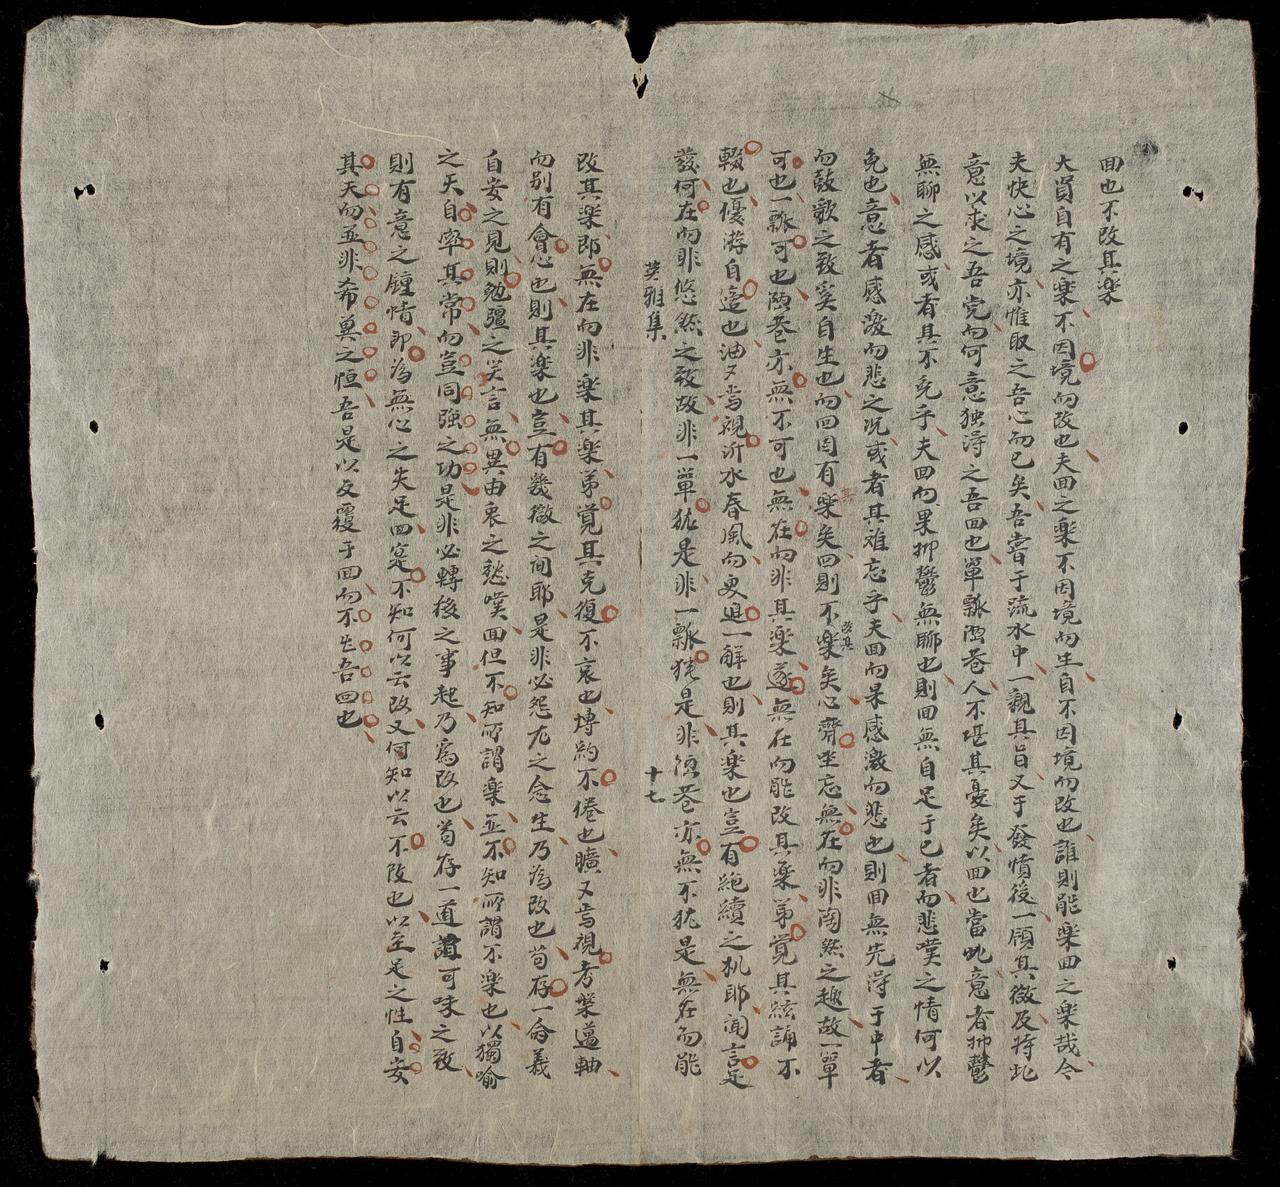 回也不改其楽
大賢自有之楽不因境而改也夫回之楽不因境而生自不因境而改也誰則能楽回之楽哉令
夫快心之境亦惟取之吾心而已矣吾嘗于流水中一観其旨又于發憤後一顧其微及将此
意以求之吾党而何意独淂之吾回也單瓢陋巷人不堪其憂矣以回也當此意者抑鬱
無聊之感或者其不免乎夫回而果抑鬱無聊也則回無自足于己者而悲嘆之情何以
免也意者感激而悲之況或者其难忘乎夫回而果感激而悲也則回無先淂于中者
而鼓歌之致奚自生也而回固有其楽矣回則不改其楽矣心齋坐忘無在而非陶然之趣故一單
可也一瓢可也陋巷亦無不可也無在而非其楽遂無在而能改其楽第覚其絃誦不
輟也優游自適也油又焉視沂水春風而更進一觧也則其楽也豈有絶續之机耶聞言足
發何在而非悠然之致故非一單犹是非一瓢犹是非陋巷亦無不犹是無在而能
英雅集 十七
改其楽即無在而非楽其楽第覚其克復不衰也博約不倦也曠又焉視考槃薖軸
而别有會心也則其楽也豈有幾微之间耶是非必怨尤之念生乃為改也苟存一侖義
自安之見則勉彊之笑言無異由衷之愁嘆回但不知所謂楽並不知所謂不楽也以獨喻
之天自率其常而豈同強之功是非必轉後之事起乃爲改也苟存一道謂可味之致
則有意之鍾情即為無心之失足回寔不知何以云改又何知以云不改也以至足之性自安
其天而並非希冀之恒吾是以反覆于回而不生吾回也